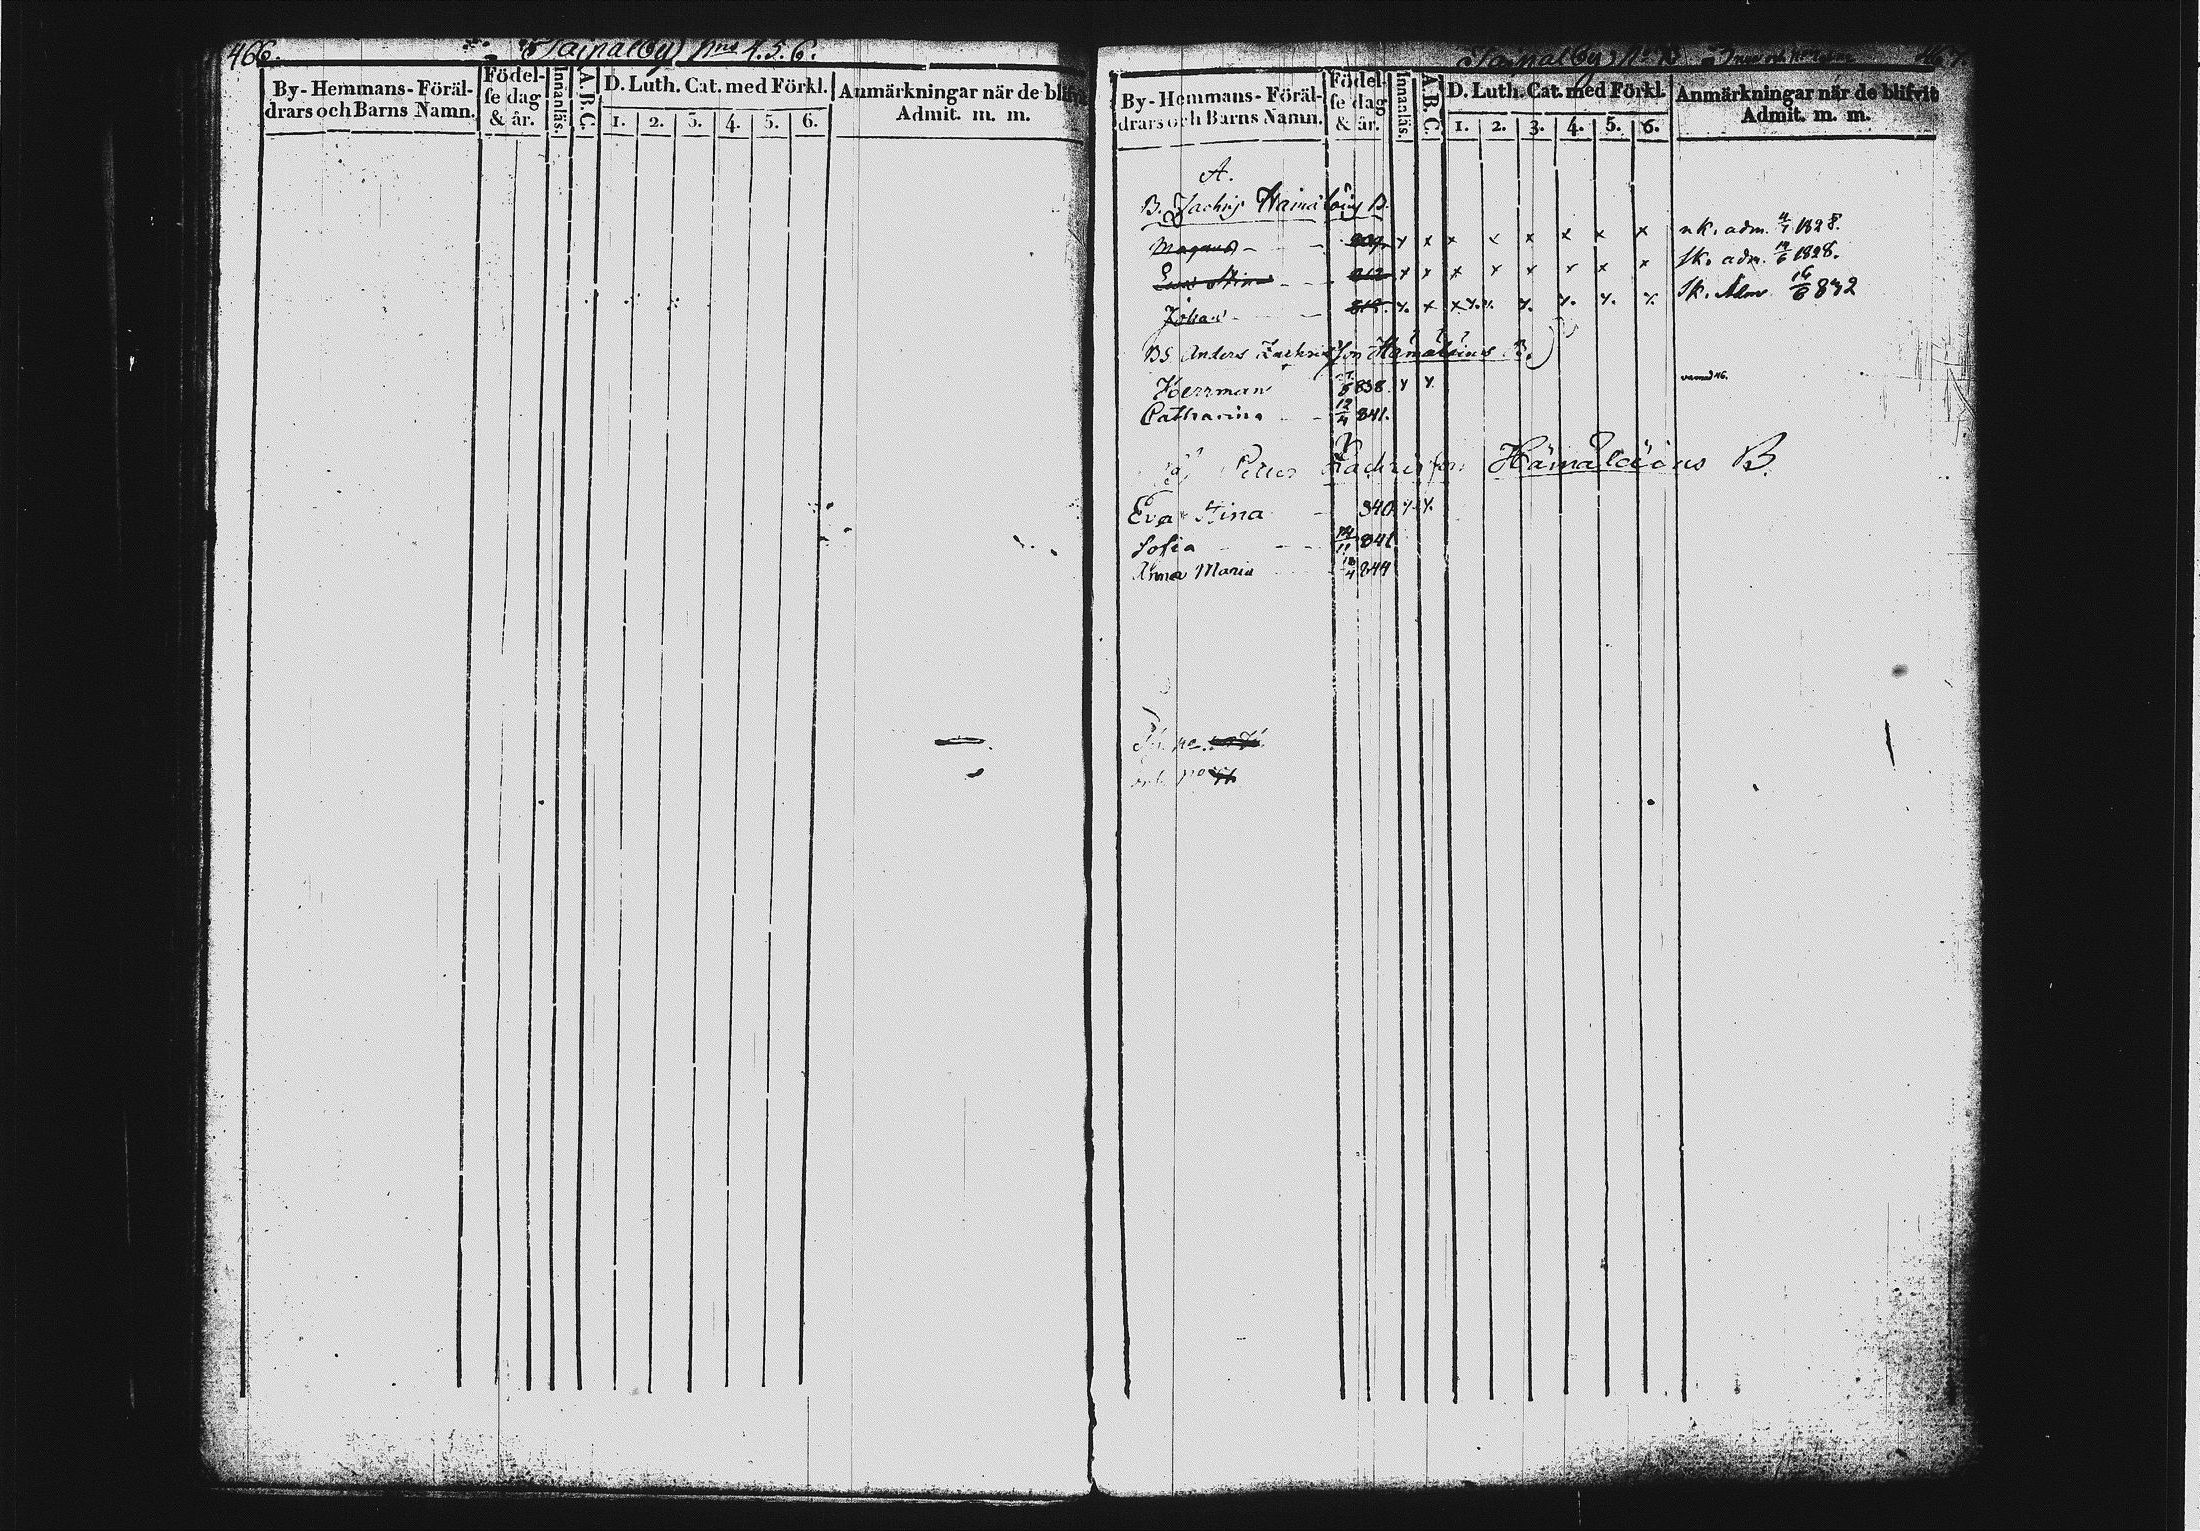 466. Taipalby Nris 4.5.6.
By- Hemmans- Föräl-
drars och Barns Namn.
Födel-
se dag
& år.
Innanläs.
A. B. C.
D. Luth. Cat. med Förkl.
1. 2. 3. 4. 5. 6.
Anmärkningar när de blifvit
Admit. m. m.
Taipalby No
By- Hemmans- Föräl-
drars och Barns Namn.
Födel-
se dag
& år.
Innanläs.
A. B. C.
D. Luth. Cat. med Förkl.
1. 2. 3. 4. 5. 6.
Anmärkningar när de blifvit
Admit. m. m.
A.
B. Zachris Hämäläinens B.
Magnus 809. x x x x x x x x nk. adm. 1828.
Eva Stina 812 x x x x x x x x sk. adm. 1828.
Johan 818. x x x x x x x x sk. Adm. 16/6 832
BS Anders Zachrisson Hämäläinens B.
Herrman 838. x x
Catharina 12/4 841.
Petter Zachrisson Hämäläinens B.
Eva Stina 840 x x
Sofia 11 841
Anna Maria 18/4 844